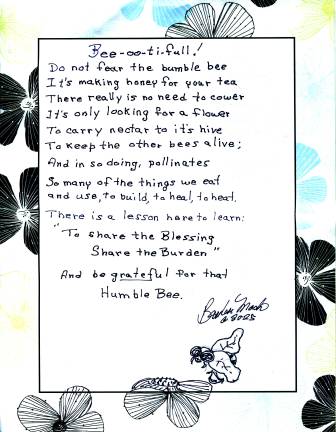 Bee-oo-ti-full!
Do not fear the bumble bee
It's making honey for your tea
There really is no need to cower
It's only looking for a flower
To carry nectar to it's hive
To keep the other bees alive;
And in so doing, pollinates
So many of the things we eat
and use, to build, to heal, to heat.
There is a lesson here to learn:
"To share the Blessing
Share the Burden"
And be grateful for that
Humble Bee.